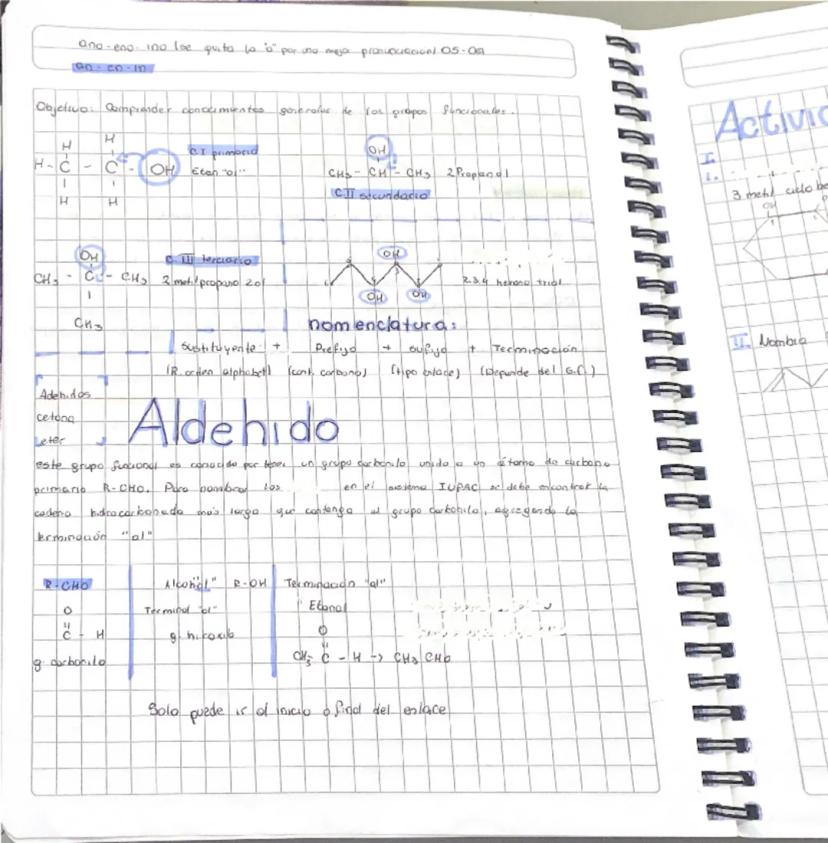 ano-eno-ino (se quita la "o" por una mejor pronunciación) 05-09
an-en-in
Objetivo: Comprender conocimientos generales de los grupos funcionales.
H H
H - C - C - OH
H H
C I primario
Etan "ol"
OH
CH3 - CH - CH3 2 Propanol
C II secundario
OH
CH3 - C - CH3
CH3
C III terciario
2 metil propano 2 ol
OH
OH OH
2.3.4 hexano triol
nomenclatura:
Sustituyente + Prefijo + sufijo + Terminación
(R. orden alphabet) (cant. carbono) (tipo enlace) (Depende del G.F.)
Adehidos
cetona
eter
Aldehido
este grupo funcional es conocido por tener un grupo carbonilo unido a un átomo de carbono
primario R-CHO. Para nombrar los en el sistema IUPAC se debe encontrar la
cadena hidrocarbonada más larga que contenga al grupo carbonilo, agregando la
terminación "al"
R-CHO
O
C - H
g. carbonilo
Alcohol" R-OH
Terminal "ol"
Terminación "al"
"Etanal
O
CH3 C - H -> CH3 CHO
Solo puede ir al inicio o final del enlace
Activid
I.
1.
3 metil ciclo
OH
II. Nombra